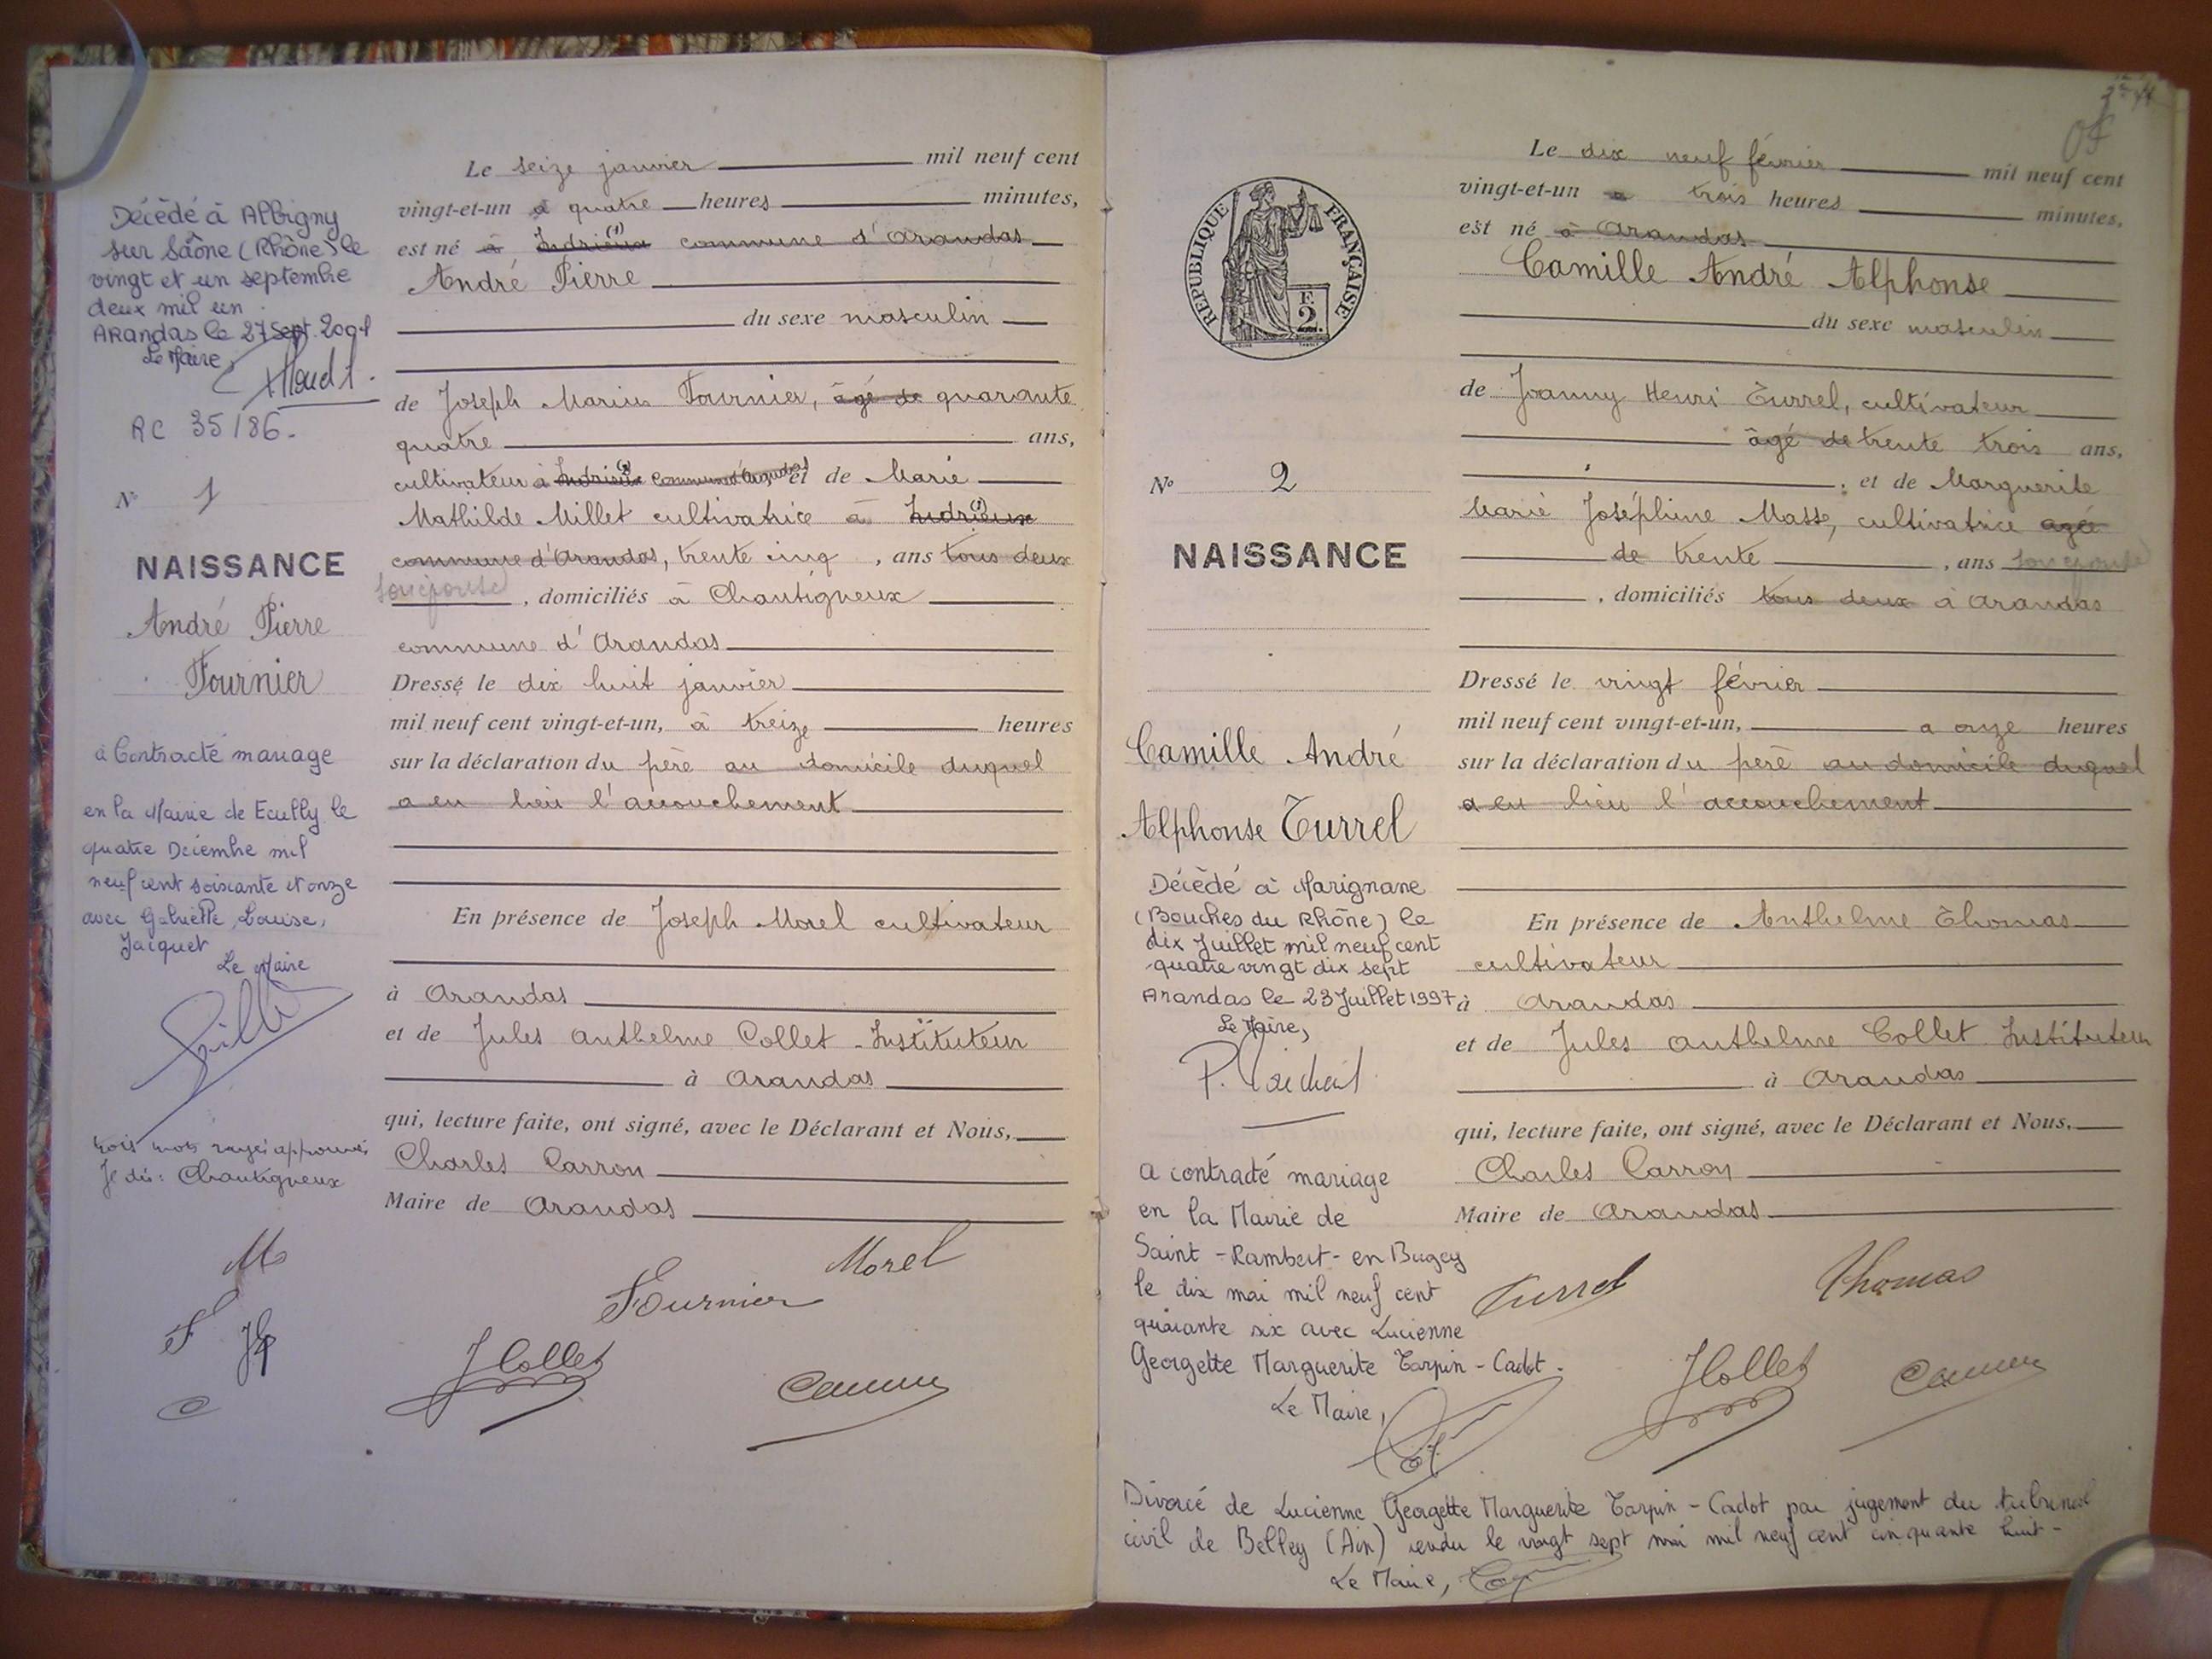 Décédé à Albigny
sur Saône (Rhône) le
vingt et un septembre
deux mil un
ARandas le 27 Sept. 2001
Le Maire,
RC 35/86.
N° 1
NAISSANCE
André Pierre
Fournier
à Contracté mariage
en la Mairie de Ecully le
quatre Décembre mil
neuf cent soixante et onze
avec Gabrielle, Louise,
Jacquet
Le Maire
trois mots rayés approuvés
Je dis : Chantigneux
M
F
C
Le seize janvier mil neuf cent
vingt-et-un à quatre heures minutes,
est né à Indrieux (1) commune d'Arandas
André Pierre
du sexe masculin
de Joseph Marius Fournier, âgé de quarante
quatre ans,
cultivateur à Indrieux commune d'Arandas et de Marie
Mathilde Millet cultivatrice à Indrieux
commune d'Arandas, trente cinq , ans tous deux
son épouse , domiciliés à Chantigneux
commune d'Arandas
Dressé le dix huit janvier
mil neuf cent vingt-et-un, à treize heures
sur la déclaration du père au domicile duquel
a eu lieu l'accouchement
En présence de Joseph Morel cultivateur
à Arandas
et de Jules Anthelme Collet Instituteur
à Arandas
qui, lecture faite, ont signé, avec le Déclarant et Nous,
Charles Carron
Maire de Arandas
Morel
Fournier
JCollet
Carron
REPUBLIQUE FRANÇAISE
F.
2
N° 2
NAISSANCE
Camille André
Alphonse Turrel
Décédé à Marignane
(Bouches du Rhône) le
dix Juillet mil neuf cent
quatre vingt dix sept
Arandas le 23 Juillet 1997
Le Maire,
a contracté mariage
en la Mairie de
Saint-Rambert-en Bugey
le dix mai mil neuf cent
quarante six avec Lucienne
Georgette Marguerite Tarpin-Cadot.
Le Maire,
Le dix neuf février mil neuf cent
vingt-et-un à trois heures minutes,
est né à Arandas
Camille André Alphonse
du sexe masculin
de Joanny Henri Turrel, cultivateur
âgé de trente trois ans,
, et de Marguerite
Marie Joséphine Masse, cultivatrice agée
de trente , ans son épouse
, domiciliés tous deux à Arandas
Dressé le vingt février
mil neuf cent vingt-et-un, a onze heures
sur la déclaration du père au domicile duquel
a eu lieu l'accouchement
En présence de Anthelme Thomas
cultivateur
à Arandas
et de Jules Anthelme Collet Instituteur
à Arandas
qui, lecture faite, ont signé, avec le Déclarant et Nous,
Charles Carron
Maire de Arandas
Turrel
Thomas
JCollet
Carron
Divorcé de Lucienne Georgette Marguerite Tarpin-Cadot par jugement du tribunal
civil de Belley (Ain) rendu le vingt sept mai mil neuf cent cinquante huit-
Le Maire,